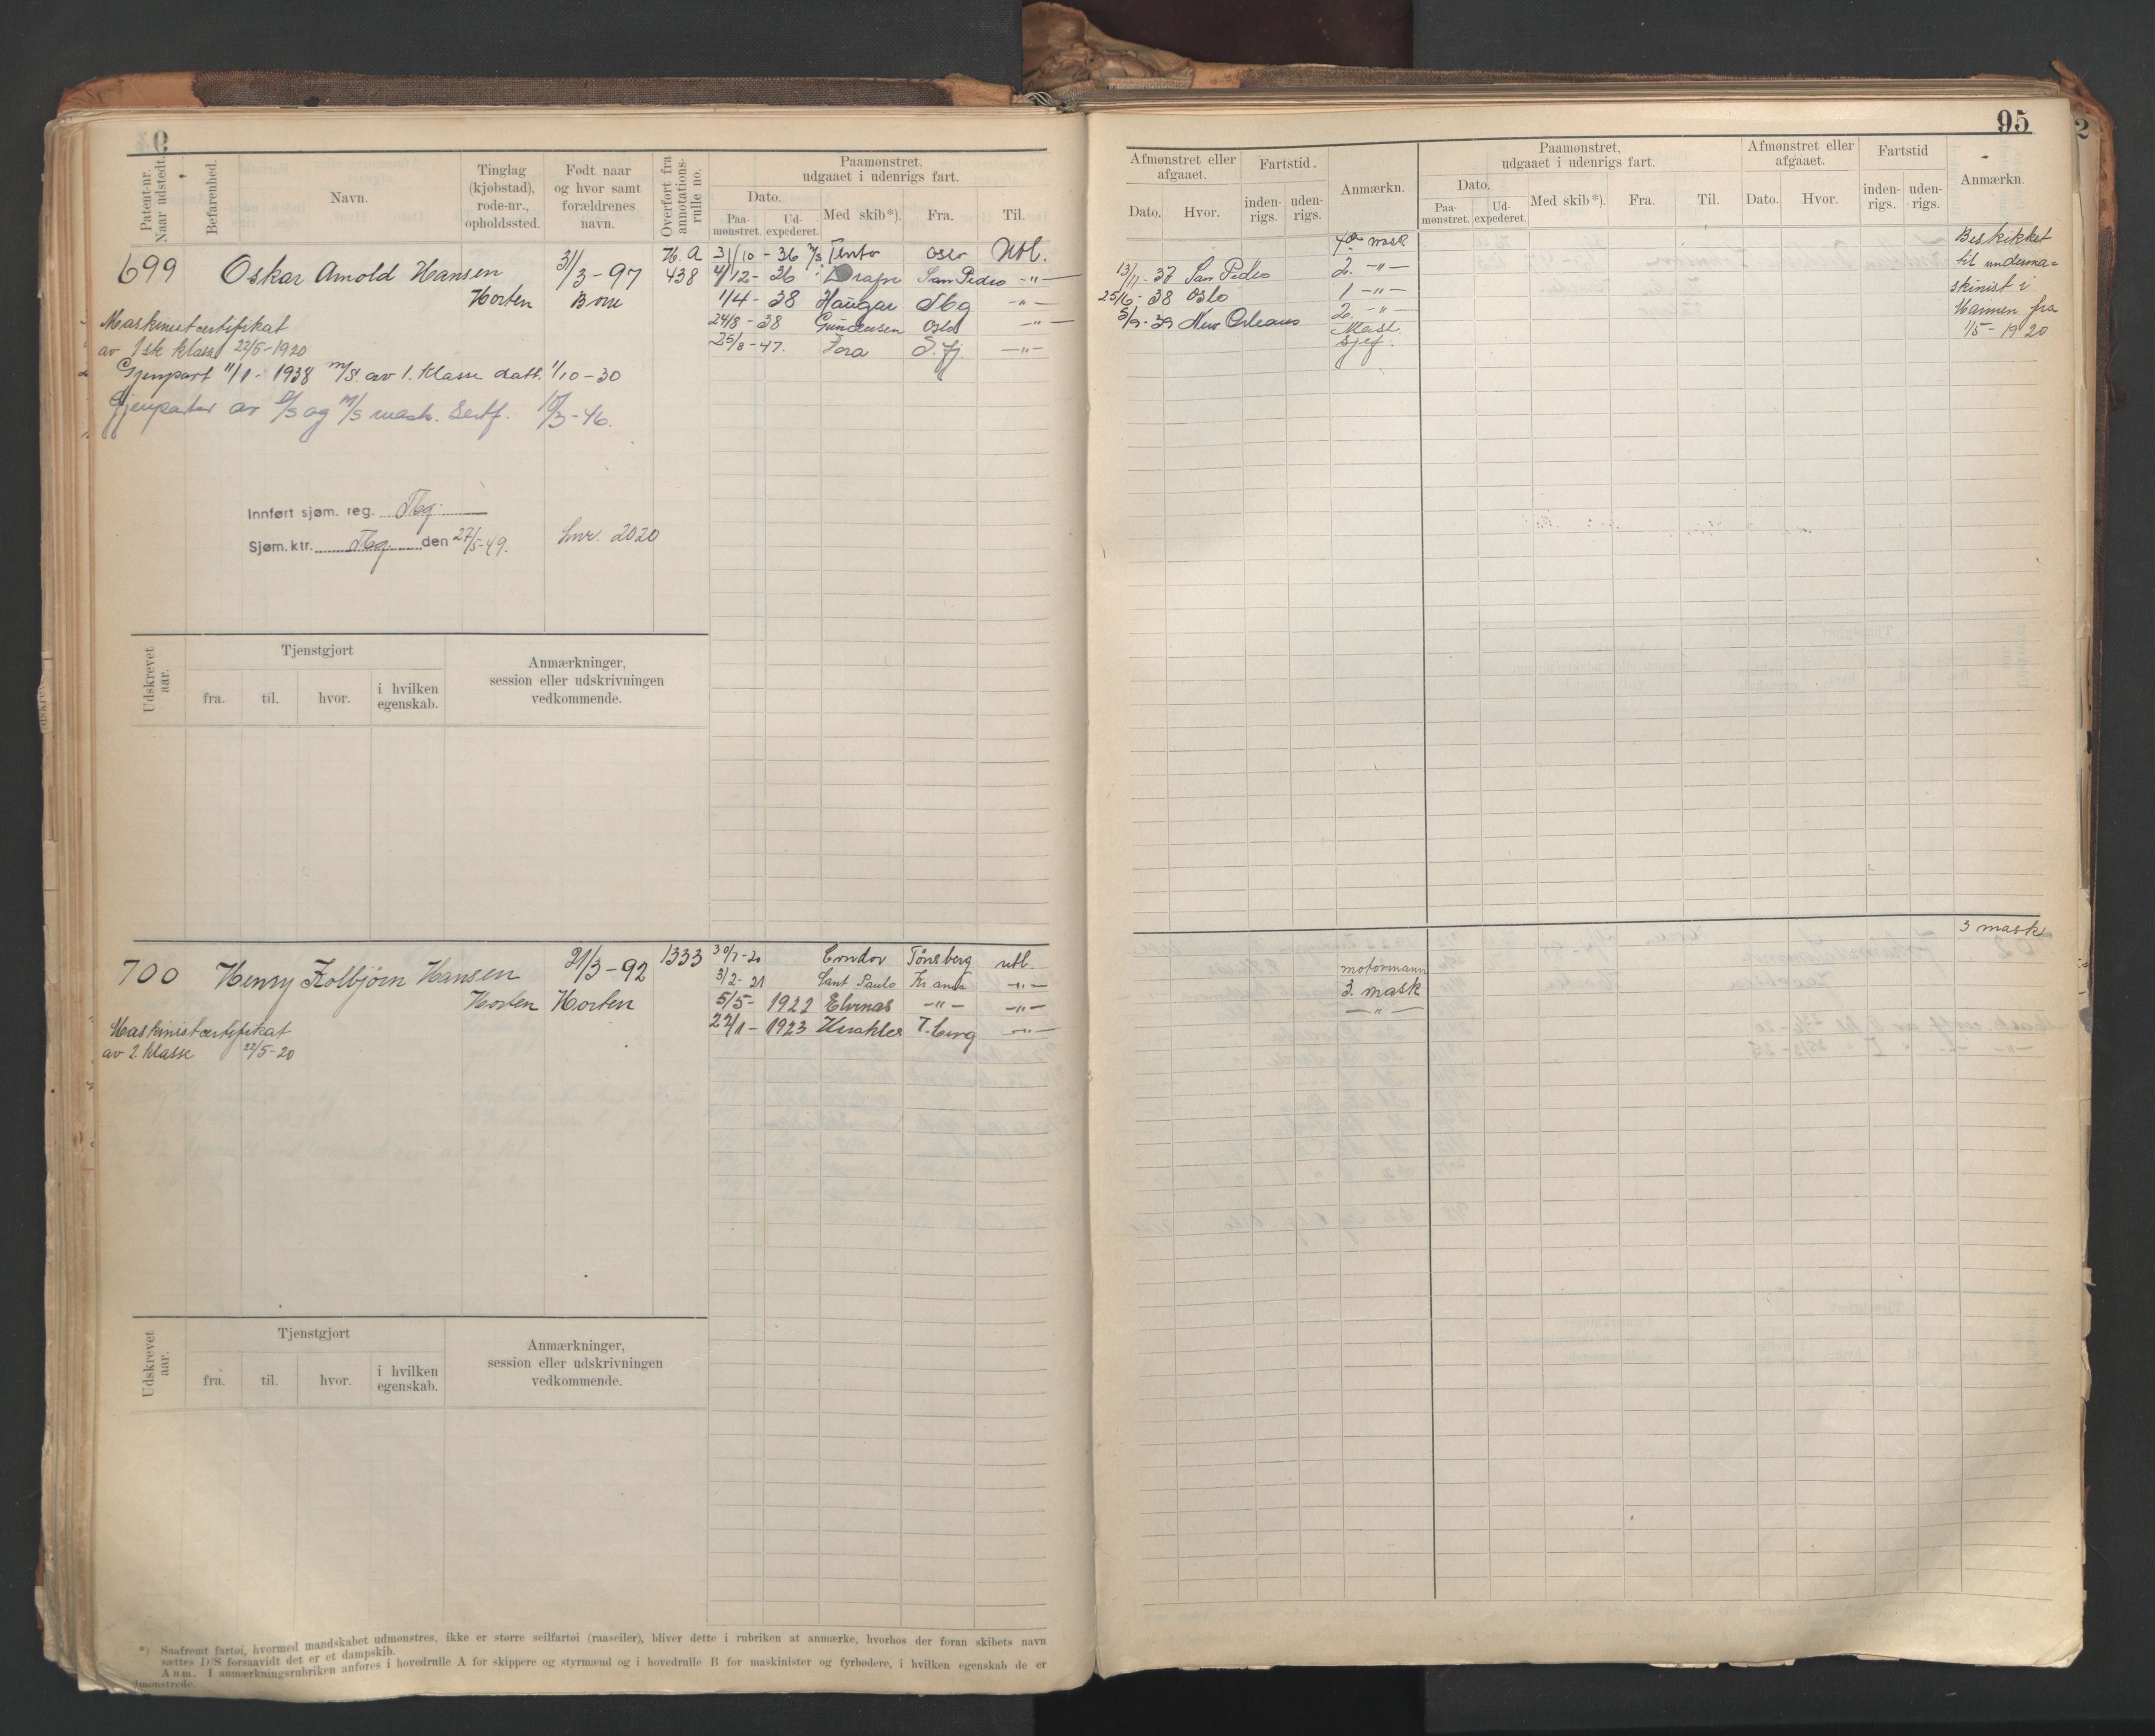 95
Patent-nr. Naar udstedt.
Befarenhed.
Navn.
Tinglag (kjøbstad), rode-nr., opholdssted.
Født naar og hvor samt forældrenes navn.
Overført fra annotations-rulle no.
Paamønstret, udgaaet i udenrigs fart.
Dato.
Paa-mønstret.
Ud-expederet.
Med skib*).
Fra.
Til.
Afmønstret eller afgaaet.
Dato.
Hvor.
Fartstid.
inden-rigs.
uden-rigs.
Anmærkn.
Paamønstret, udgaaet i udenrigs fart.
Dato.
Paa-mønstret.
Ud-expederet.
Med skib*).
Fra.
Til.
Afmønstret eller afgaaet.
Dato.
Hvor.
Fartstid
inden-rigs.
uden-rigs.
Anmærkn.
699 Oskar Arnold Hansen 31/3-97 H. A 438
Horten Borre
31/10-36 M/S Tento Oslo Utl.
4/12-36 San Pedro -"-
1/4-38 Haugar Tbg -"-
24/8-38 Gundersen Oslo -"-
25/8-47. Tora S. fj. -"-
Maskinistcertifikat
av 1sk klasse 22/5-1920
Gjenpart 11/1-1938 m/s. av 1. klasse datt. 1/10-30
Gjenparter av D/S og M/S mask. sertf. 18/3-46.
Innført sjøm. reg. Tbg.
Sjøm.ktr. Tbg. den 27/5-49. Lnr. 2020
mask
13/11-37 San Pedro 2. -"-
25/6-38 Oslo 1 -"-
5/9-39 New Orleans 2. -"-
Mask.
sjef.
Beskikket
til underma=
skinist i
Marinen fra
1/5-1920
Udskrevet aar.
Tjenstgjort
fra.
til.
hvor.
i hvilken egenskab.
Anmærkninger, session eller udskrivningen vedkommende.
700 Henry Kolbjørn Hansen 21/3-92 1333
Horten Horten
Maskinistcertifikat
av 2. klasse 22/5-20
30/7-20 Tønsberg utl.
3/2-21 Sant Paulo Kr.and -"-
5/5-1922 Elvenas -"- -"-
22/1-1923 Herakles T.berg -"-
motormann
3. mask
-"-
3 mask
Udskrevet aar.
Tjenstgjort
fra.
til.
hvor.
i hvilken egenskab.
Anmærkninger, session eller udskrivningen vedkommende.
*) Saafremt fartøi, hvormed mandskabet udmønstres, ikke er større seilfartøi (raaseiler), bliver dette i rubriken at anmærke, hvorhos der foran skibets navn
sættes D/S forsaavidt det er et dampskib.
Anm. I anmærkningsrubriken anføres i hovedrulle A for skippere og styrmænd og i hovedrulle B for maskinister og fyrbødere, i hvilken egenskab de er